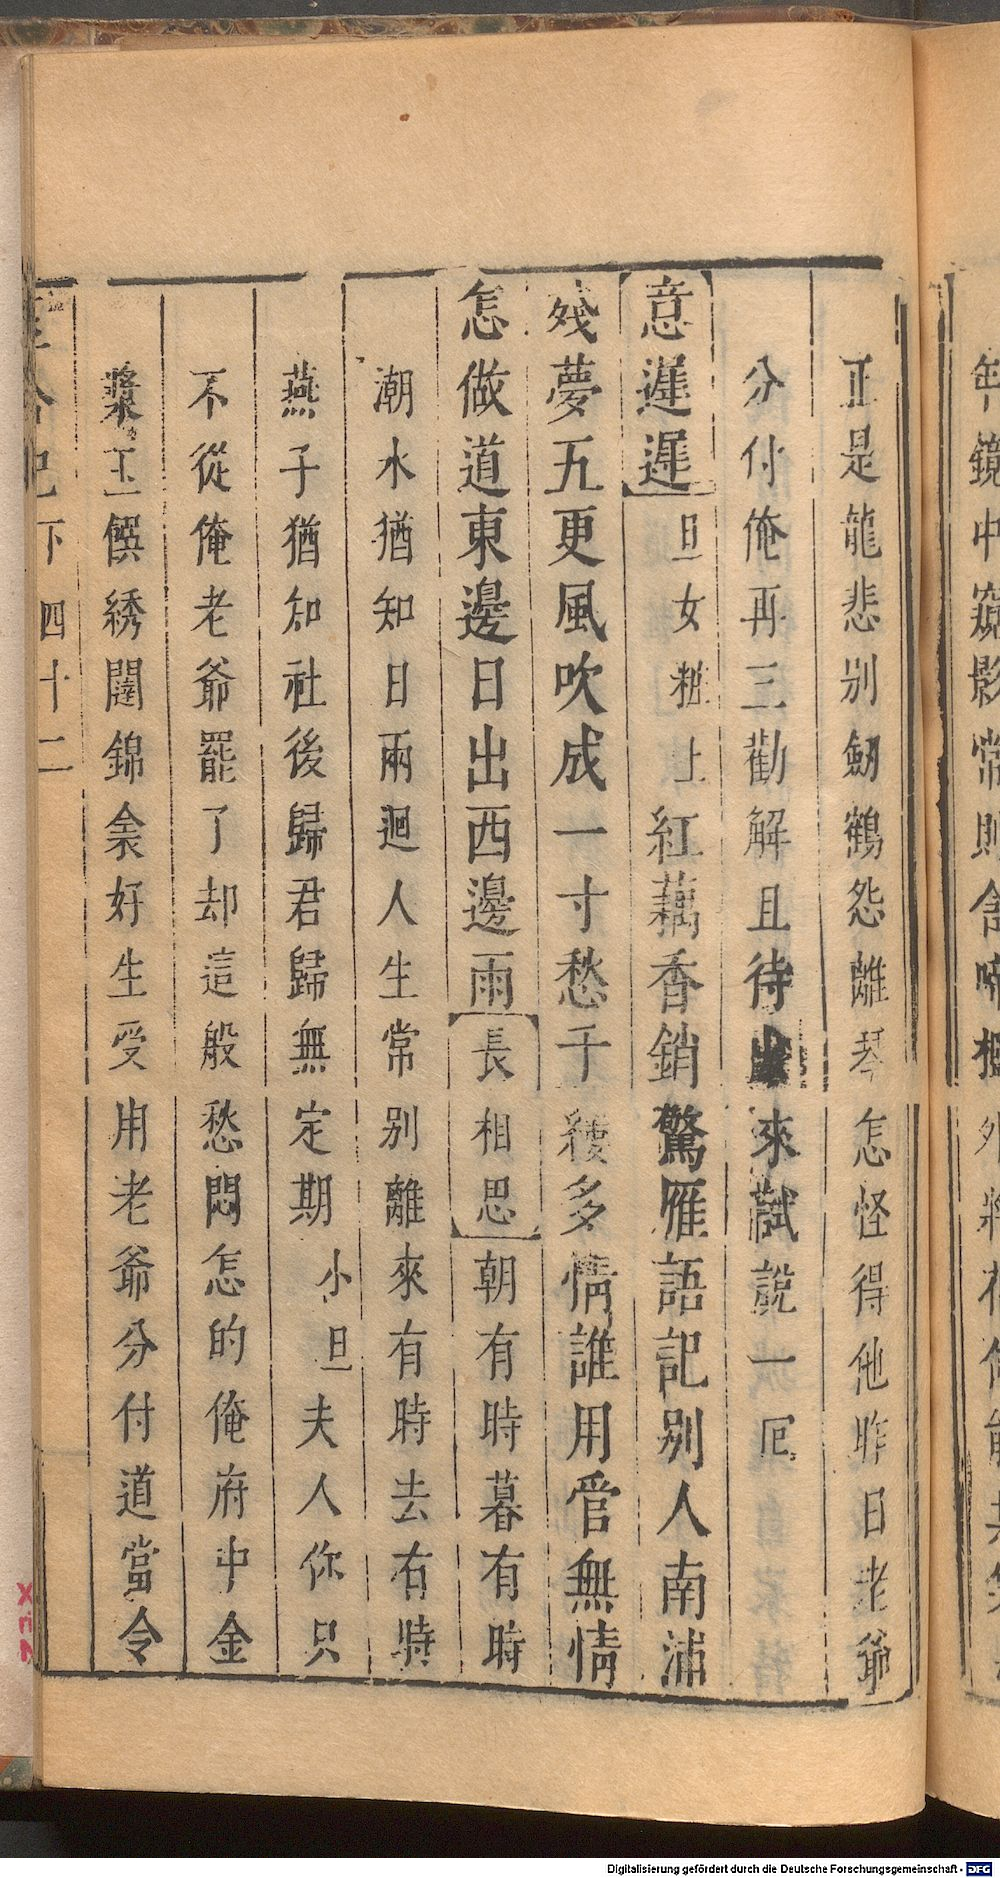 正是龍悲别劒鶴怨離琴怎怪得他昨日老爺
分付俺再三勸解且待出來試說一囘
意遲遲旦女粧上紅藕香銷驚雁語記别人南浦
殘夢五更風吹成一寸愁千縷多情誰用管無情
怎做道東邊日出西邊雨長相思朝有時暮有時
潮水猶知日兩廻人生常别離來有時去有時
燕子猶知社後歸君歸無定期小旦夫人你只
不從俺老爺罷了却這般愁悶怎的俺府中金
漿玉饌綉闥錦衾好生受用老爺分付道當令
合記下四十二
Digitalisierung gefördert durch die Deutsche Forschungsgemeinschaft - DFG